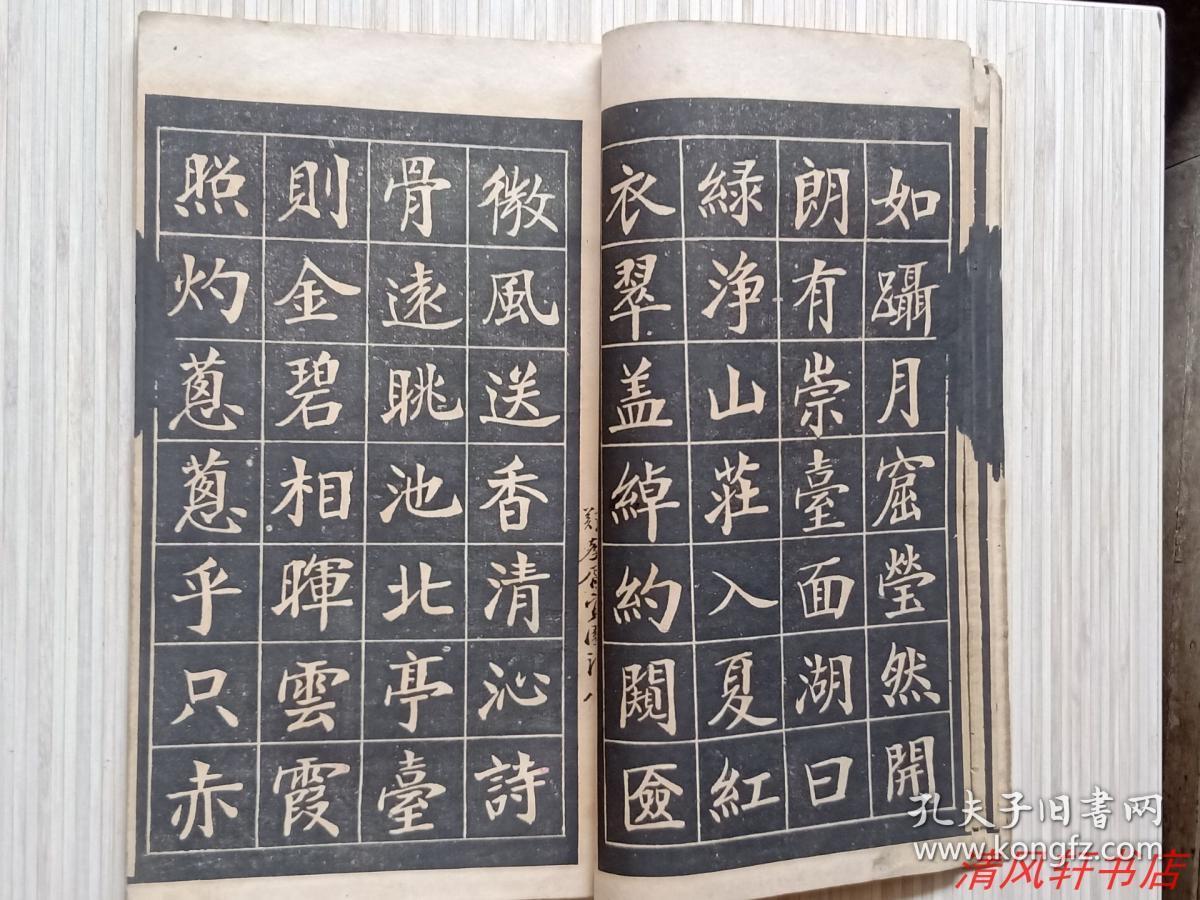 如躡月窟瑩然開
朗有崇臺面湖曰
緑净山莊入夏紅
衣翠盖綽約闃匳
微風送香清沁詩
骨遠眺池北亭臺
則金碧相暉雲霞
照灼蔥蔥乎只赤
孔夫子旧书网
www.kongfz.com
清风轩书店